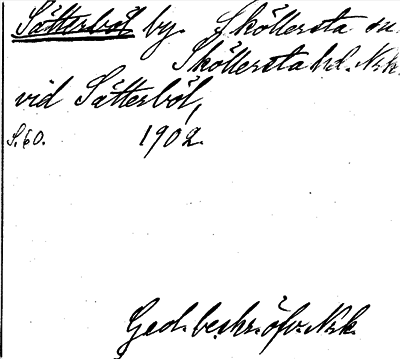 Sätterböl by. Sköllersta sn.
Sköllersta hd. Nrk.
vid Sätterböl,
S. 60. 1902.
Geol. beskr. öfv. Nrk.